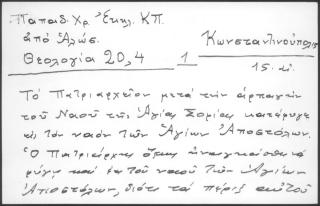 Παπαδ. Χρ. Ἐκκλ. ΚΠ.
ἀπό Ἁλώσ.
Κωνσταντινούπολις
Θεολογία 20, 4 1
15. αἰ.
Τό Πατριαρχεῖον μετά τήν ἁρπαγήν
τοῦ Ναοῦ τῆς Ἁγίας Σοφίας κατέφυγε
εἰς τόν ναόν τῶν Ἁγίων Ἀποστόλων.
Ὁ Πατριάρχης ὅμως ἠναγκάσθη νά
φύγῃ καί ἐκ τοῦ ναοῦ τῶν Ἁγίων
Ἀποστόλων, διότι τά πέριξ αὐτοῦ